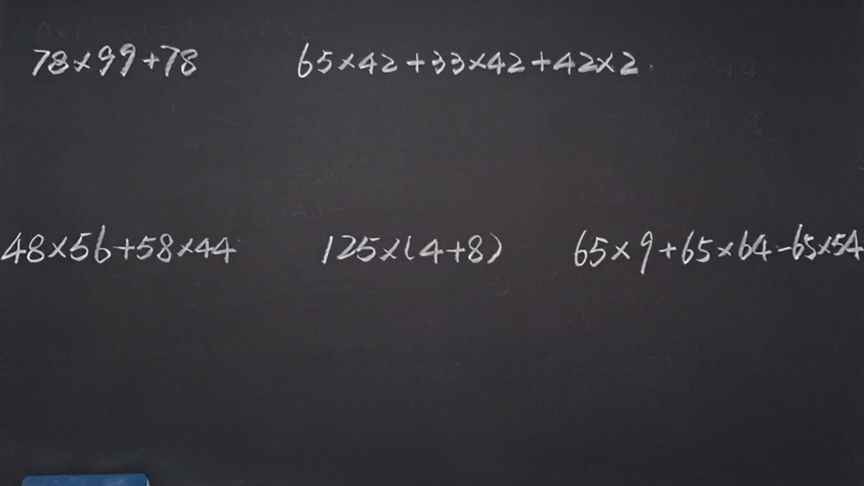 78×99+78 65×42+33×42+42×2
48×56+58×44 125×(4+8) 65×9+65×64-65×54